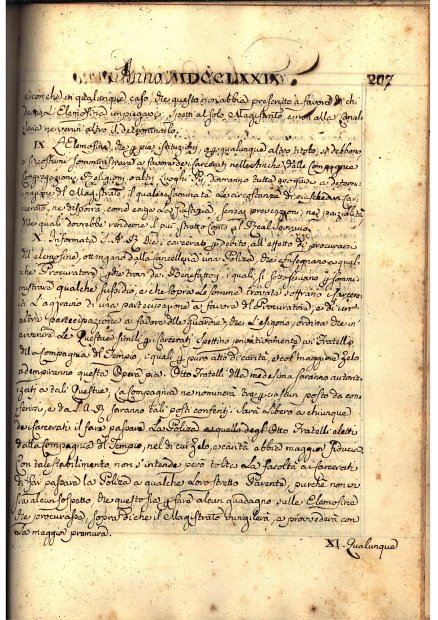 Anno MDCCLXXIX. 207
e con che in qualunque caso, che questo non abbia prescritto a favore di chi
l'Elemosine impiegarsi, spetti al solo Magistrato, e non alla Cancel-
leria ne verun altro il
IX. L'Elemosine, che per pie istituzioni, o per qualunque altro titolo, si debbono,
o si costumi somministrare a favore de' carcerati nelle Stinche dalle Compagnie
Congregazioni, Religioni, o altri Luoghi Pii, dovranno tutte
nazione del Magistrato, il quale esaminata la circostanza di ciascheduno Car-
cerato, ne disporrà, come esige la Giustizia, senza prevenzioni, ne parzialità
delle quali dovrebbe renderne il più stretto conto al Real Sovrano.
X. Informata S. A. R. che i carcerati per debito, all'effetto di procurarsi
dell'elemosine, ottengano dalla Cancelleria una Polizza, che
Procuratore per che trovi dei Benefattori, i quali si sottoscrivono per sommi-
nistrare qualche sussidio, e che sopra le somme trovate soffrano i carcera-
ti l'aggravio di una partecipazione a favore del Procuratore, e di un'
altra partecipazione a favore delle guardie, che l'esigono, ordina che in
avvenire le Questue simili per i carcerati spettino privativamente ai Fratelli
della Compagnia del Tempio, i quali per puro atto di carità, e col maggiore zelo
adempiranno questa Opera pia. Otto Fratelli della medesima saranno autoriz-
zati a tali Questue, la Compagnia ne nominerà tre per ciascun posto da con-
ferirsi, e da S. A. R. saranno tali posti conferiti. Sarà libero a chiunque
de' carcerati il fare passare la Polizza a quello degli Otto Fratelli eletti
dalla Compagnia del Tempio, nel di cui zelo, e carità abbia maggior fiducia.
Con tale stabilimento non s'intende però tolta la facoltà a i carcerati
di far passare la Polizza a qualche loro stretto Parente, purchè non vi
sia alcun sospetto, che questo sia per fare alcun guadagno sulle Elemosine
che procurasse, sopra di che il Magistrato vigilerà, e provvederà con
la maggior premura.
XI. Qualunque